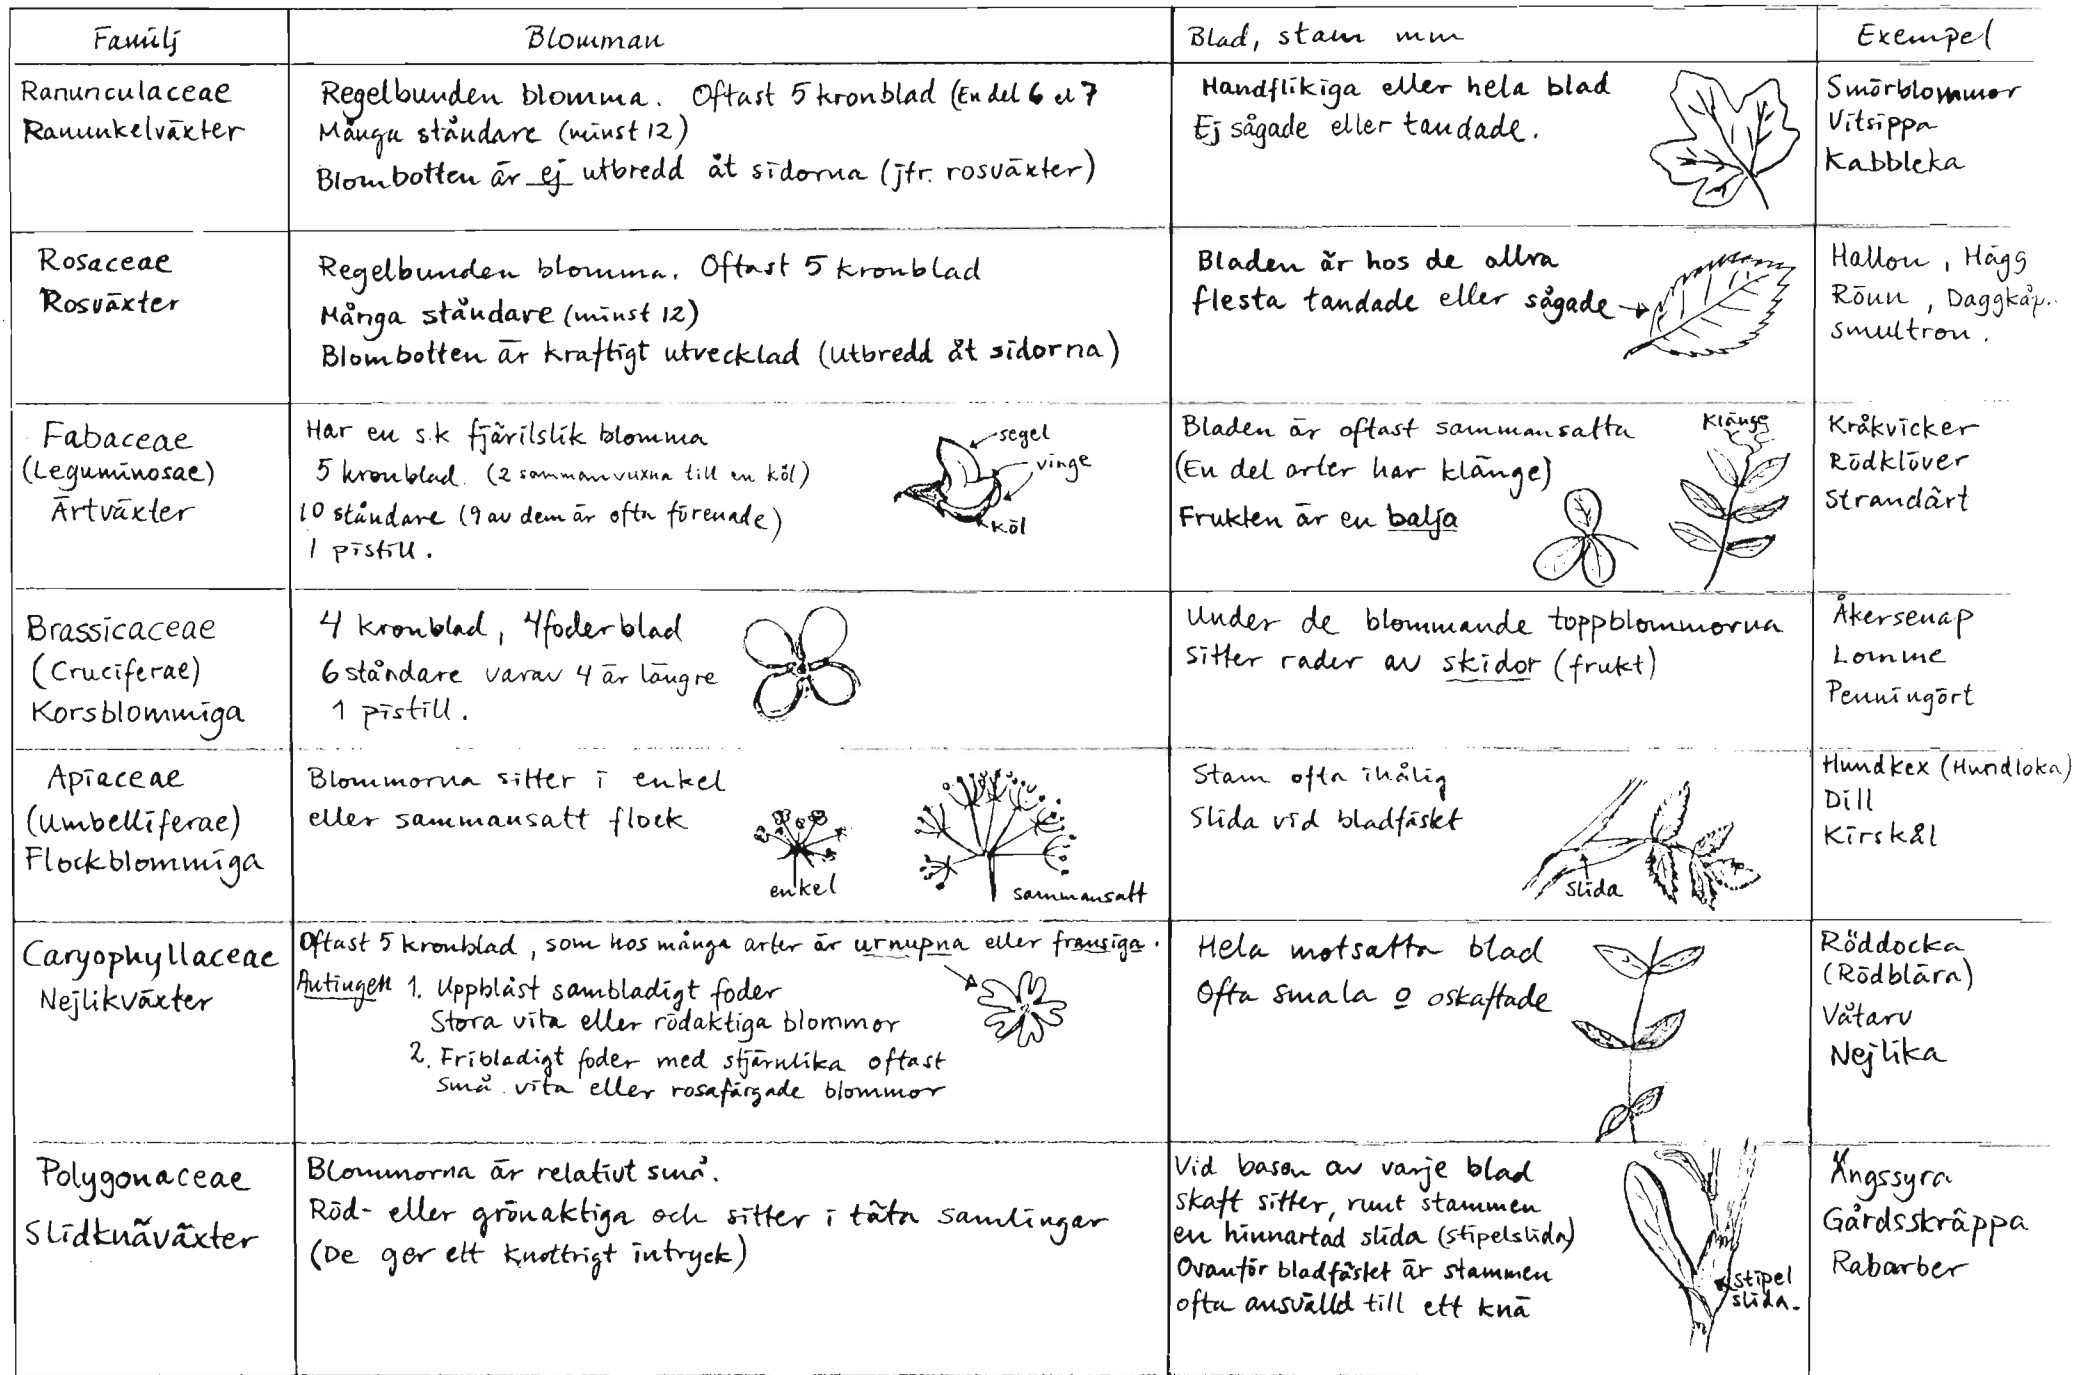 Familj
Blomman
Blad, stam mm
Exempel
Ranunculaceae
Ranunkelväxter
Regelbunden blomma. Oftast 5 kronblad (En del 6 el 7
Många ståndare (minst 12)
Blombotten är ej utbredd åt sidorna (jfr. rosväxter)
Handflikiga eller hela blad
Ej sågade eller tandade.
Smörblommor
Vitsippa
Kabbleka
Rosaceae
Rosväxter
Regelbunden blomma. Oftast 5 kronblad
Många ståndare (minst 12)
Blombotten är kraftigt utvecklad (utbredd åt sidorna)
Bladen är hos de allra
flesta tandade eller sågade
Hallon, Hägg
Rönn, Daggkåp..
smultron.
Fabaceae
(Leguminosae)
Ärtväxter
Har en s.k fjärilslik blomma
5 kronblad. (2 sammanvuxna till en köl)
10 ståndare (9 av dem är ofta förenade)
1 pistill.
segel
vinge
köl
Bladen är oftast sammansatta
(En del arter har klänge)
Frukten är en balja
Klänge
Kråkvicker
Rödklöver
Strandärt
Brassicaceae
(Cruciferae)
Korsblommiga
4 kronblad, 4 foderblad
6 ståndare varav 4 är längre
1 pistill.
Under de blommande toppblommorna
sitter rader av skidor (frukt)
Åkersenap
Lomme
Penningört
Apiaceae
(Umbelliferae)
Flockblommiga
Blommorna sitter i enkel
eller sammansatt flock
enkel
sammansatt
Stam ofta ihålig
Slida vid bladfästet
slida
Hundkex (Hundloka)
Dill
Kirskål
Caryophyllaceae
Nejlikväxter
Oftast 5 kronblad, som hos många arter är urnupna eller fransiga.
Antingen 1. Uppblåst sambladigt foder
Stora vita eller rödaktiga blommor
2. Fribladigt foder med stjärnlika oftast
små vita eller rosafärgade blommor
Hela motsatta blad
Ofta smala o oskaftade
Röddocka
(Rödblära)
Våtarv
Nejlika
Polygonaceae
Slidknäväxter
Blommorna är relativt små.
Röd- eller grönaktiga och sitter i täta samlingar
(De ger ett knottrigt intryck)
Vid basen av varje blad
skaft sitter, runt stammen
en hinnartad slida (stipelslida)
Ovanför bladfästet är stammen
ofta ansvälld till ett knä
stipel
slida.
Ängssyra
Gårdsskräppa
Rabarber